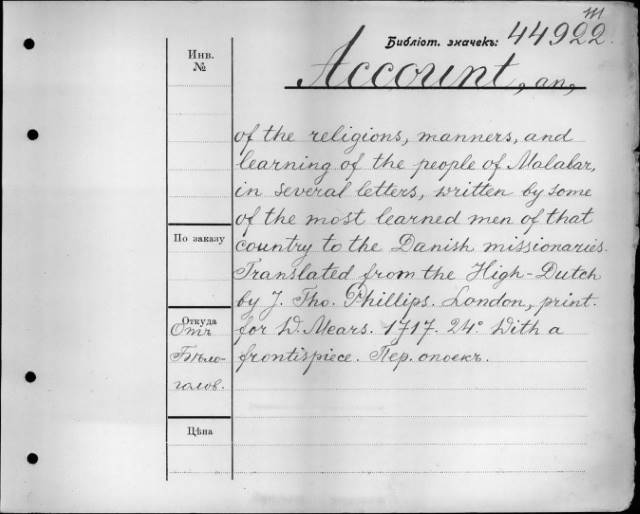 m
Библіот. значекъ: 44922.
Инв.
№
Account, an,
of the religions, manners, and
learning of the people of Malabar,
in several letters, written by some
of the most learned men of that
По заказу
country to the Danish missionaries.
Translated from the High-Dutch
by J. Tho. Phillips. London, print.
Откуда
Отъ
for W. Mears. 1717. 24° With a
Бѣло-
frontispiece. Пер. опоекъ.
голов.
Цѣна